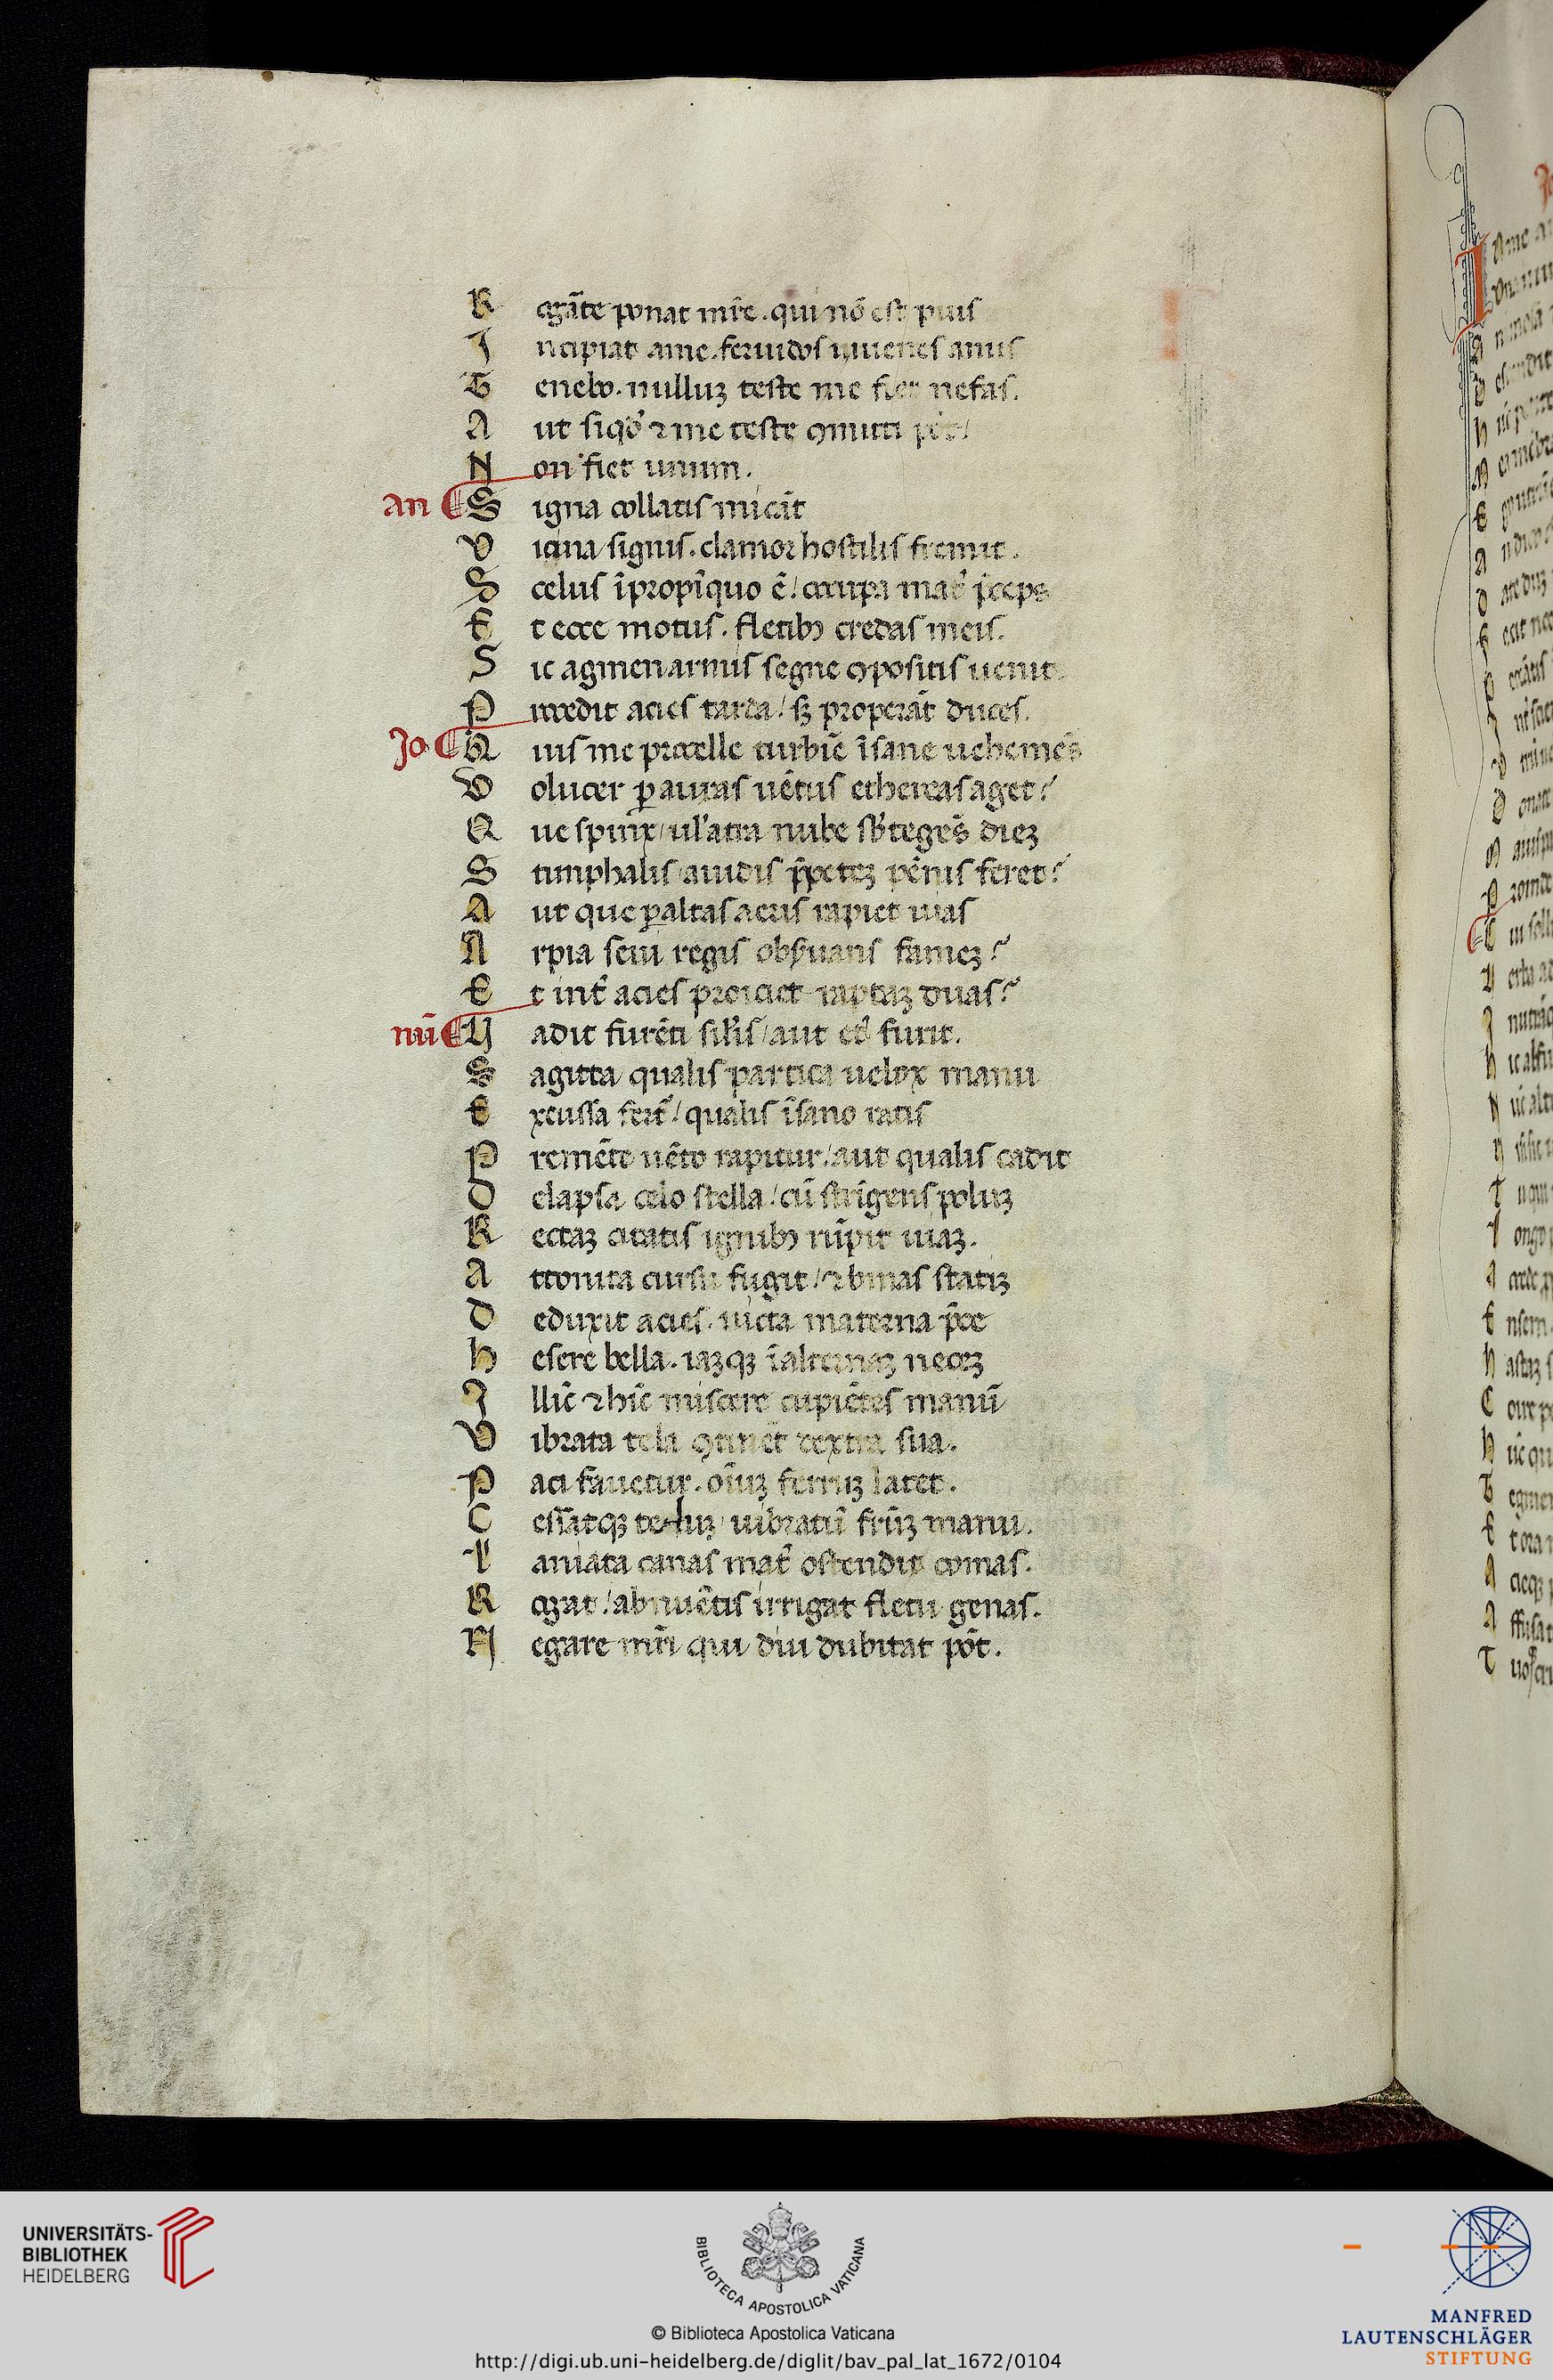 R ogāte ponat mr̄e. qui nō est pius
I ncipiat a me. feruidos iuuenes anus
T enebo. nulluꝫ teste me fiet nefas.
A ut siqd̛ ⁊ me teste ꝯmitti pōt/
N on fiet unum.
an ¶ S igna collatis micāt
V icina signis. clamor hostilis fremit.
S celus ī propīquo ē/ occupa mat̛ p̄ces
E t ecce motus. fletibꝯ credas meis.
S ic agmen armis segne ꝯpositis uenit.
P rocedit acies tarda/ sꝫ properāt duces.
Jo ¶ Q uis me procelle turbīe īsane uehemēs
V olucer ꝑ auras uētus ethereas aget?
Q ue spinx/ ul̛ atra nube sb̛tegēs dieꝫ
S timphalis/ auidis p̄peteꝫ pēnis feret?
A ut que ꝑ altas aeris rapiet uias
A rpia seui regis obẜuans fameꝫ?
E t int̄ acies proiciet raptaꝫ duas?
nū ¶ V adit furēti sil̛is/ aut et̛ furit.
S agitta qualis partica uelox manu
E xcussa fert̛/ qualis īsano ratis
P remēte uēto rapitur/ aut qualis cadit
D elapsa celo stella/ cū strīgens poluꝫ
R ectaꝫ citatis ignibꝯ rūpit uiaꝫ.
A ttonita cursu fugit/ ⁊ binas statiꝫ
D eduxit acies. uicta materna p̄ce
H esere bella. iaꝫqꝫ ī alternaꝫ neceꝫ
I llīc ⁊ hīc miscere cupiētes manū
V ibrata tela ꝯtinēt dextra sua.
P aci fauetur. oīuꝫ ferruꝫ latet.
C essātqꝫ teluꝫ/ uibratū frūꝫ manu.
L aniata canas mat̄ ostendit comas.
R ogat/ abnuētis irrigat fletu genas.
N egare mr̄i qui diu dubitat pōt.
UNIVERSITÄTS-
BIBLIOTHEK
HEIDELBERG
BIBLIOTECA APOSTOLICA VATICANA
© Biblioteca Apostolica Vaticana
http://digi.ub.uni-heidelberg.de/diglit/bav_pal_lat_1672/0104
MANFRED
LAUTENSCHLÄGER
STIFTUNG